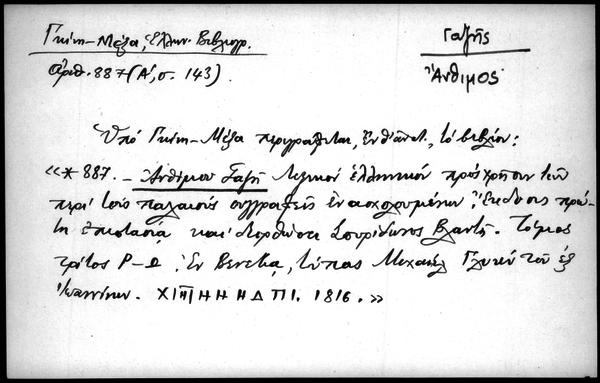 Γκίνη-Μέξα, Ἑλλην. Βιβλιογρ.
Γαζῆς
ἀριθ. 887 (Α΄, σ. 143).
Ἄνθιμος
Ὑπό Γκίνη-Μέξα περιγράφεται, ἔνθ' ἀνωτ., τό βιβλίον:
«*887. – Ἀνθίμου Γαζῆ Λεξικόν ἑλληνικόν πρός χρῆσιν τῶν
περί τούς παλαιούς συγγραφεῖς ἐνασχολουμένων, Ἔκδοσις πρώ-
τη ἐπιστασίᾳ καί διορθώσει Σπυρίδωνος Βλαντῆ. Τόμος
τρίτος Ρ–Ω. Ἐν Βενετίᾳ, τύποις Μιχαήλ Γλυκύ τοῦ ἐξ
Ἰωαννίνων. 1816.»